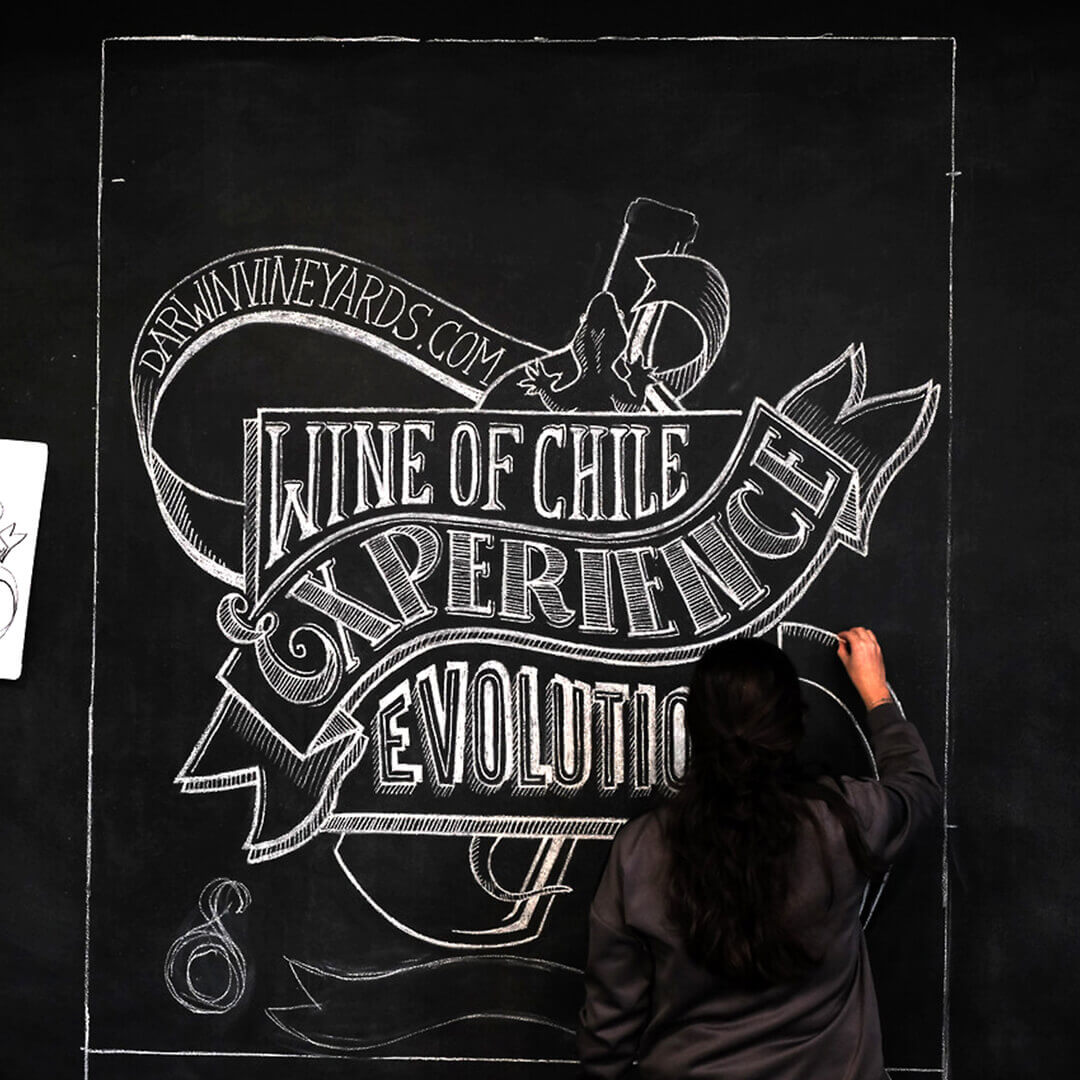 DARWINVINEYARDS.COM
WINE OF CHILE
EXPERIENCE
EVOLUTIO